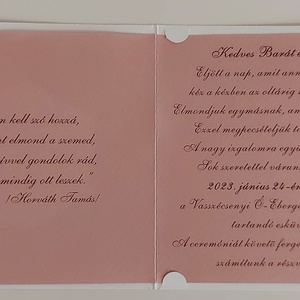 n kell szó hozzá,
at elmond a szemed,
ívvel gondolok rád,
mindig ott leszek."
/Horváth Tamás/
Kedves Barát
Eljött a nap, amit ann
kéz a kézben az oltárig
Elmondjuk egymásnak, am
Ezzel megpecsételjük
A nagy izgalomra együ
Sok szeretettel várun
2023. június 24-én
a Vasszécsenyi Ó-Eberg
tartandó eskü
A ceremóniát követő ferge
számítunk a részv